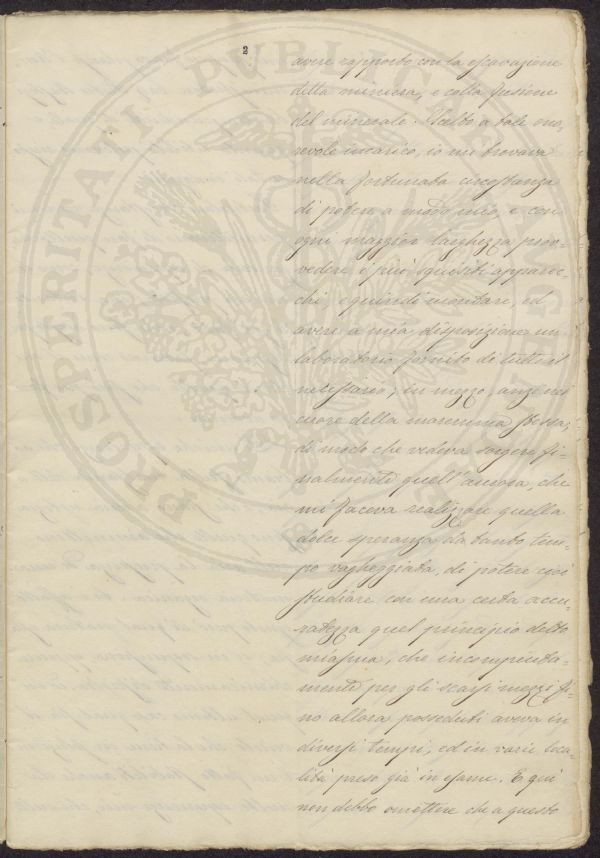 2
avere rapporto con la escavazione
della miniera, e colla fusione
del minerale. Scelto a tale ono-
revole incarico, io mi trovava
nella fortunata circostanza
di potere a modo mio, e con
ogni maggior larghezza prov-
vedere i più squisiti apparec-
chi, e quindi montare, ed
avere a mia disposizione un
laboratorio fornito di tutto il
necessario, in mezzo, anzi nel
cuore della maremma stessa;
di modo che vedeva sorgere fi-
nalmente quell'aurora, che
mi faceva realizzare quella
dolce speranza da tanto tem-
po vagheggiata, di potere cioè
studiare con una certa accu-
ratezza quel principio detto
miasma, che incompiuta-
mente per gli scarsi mezzi fi-
no allora posseduti aveva in
diversi tempi, ed in varie loca-
lità preso già in esame. E qui
non debbo omettere che a questo
PROSPERITATI PUBLICAE